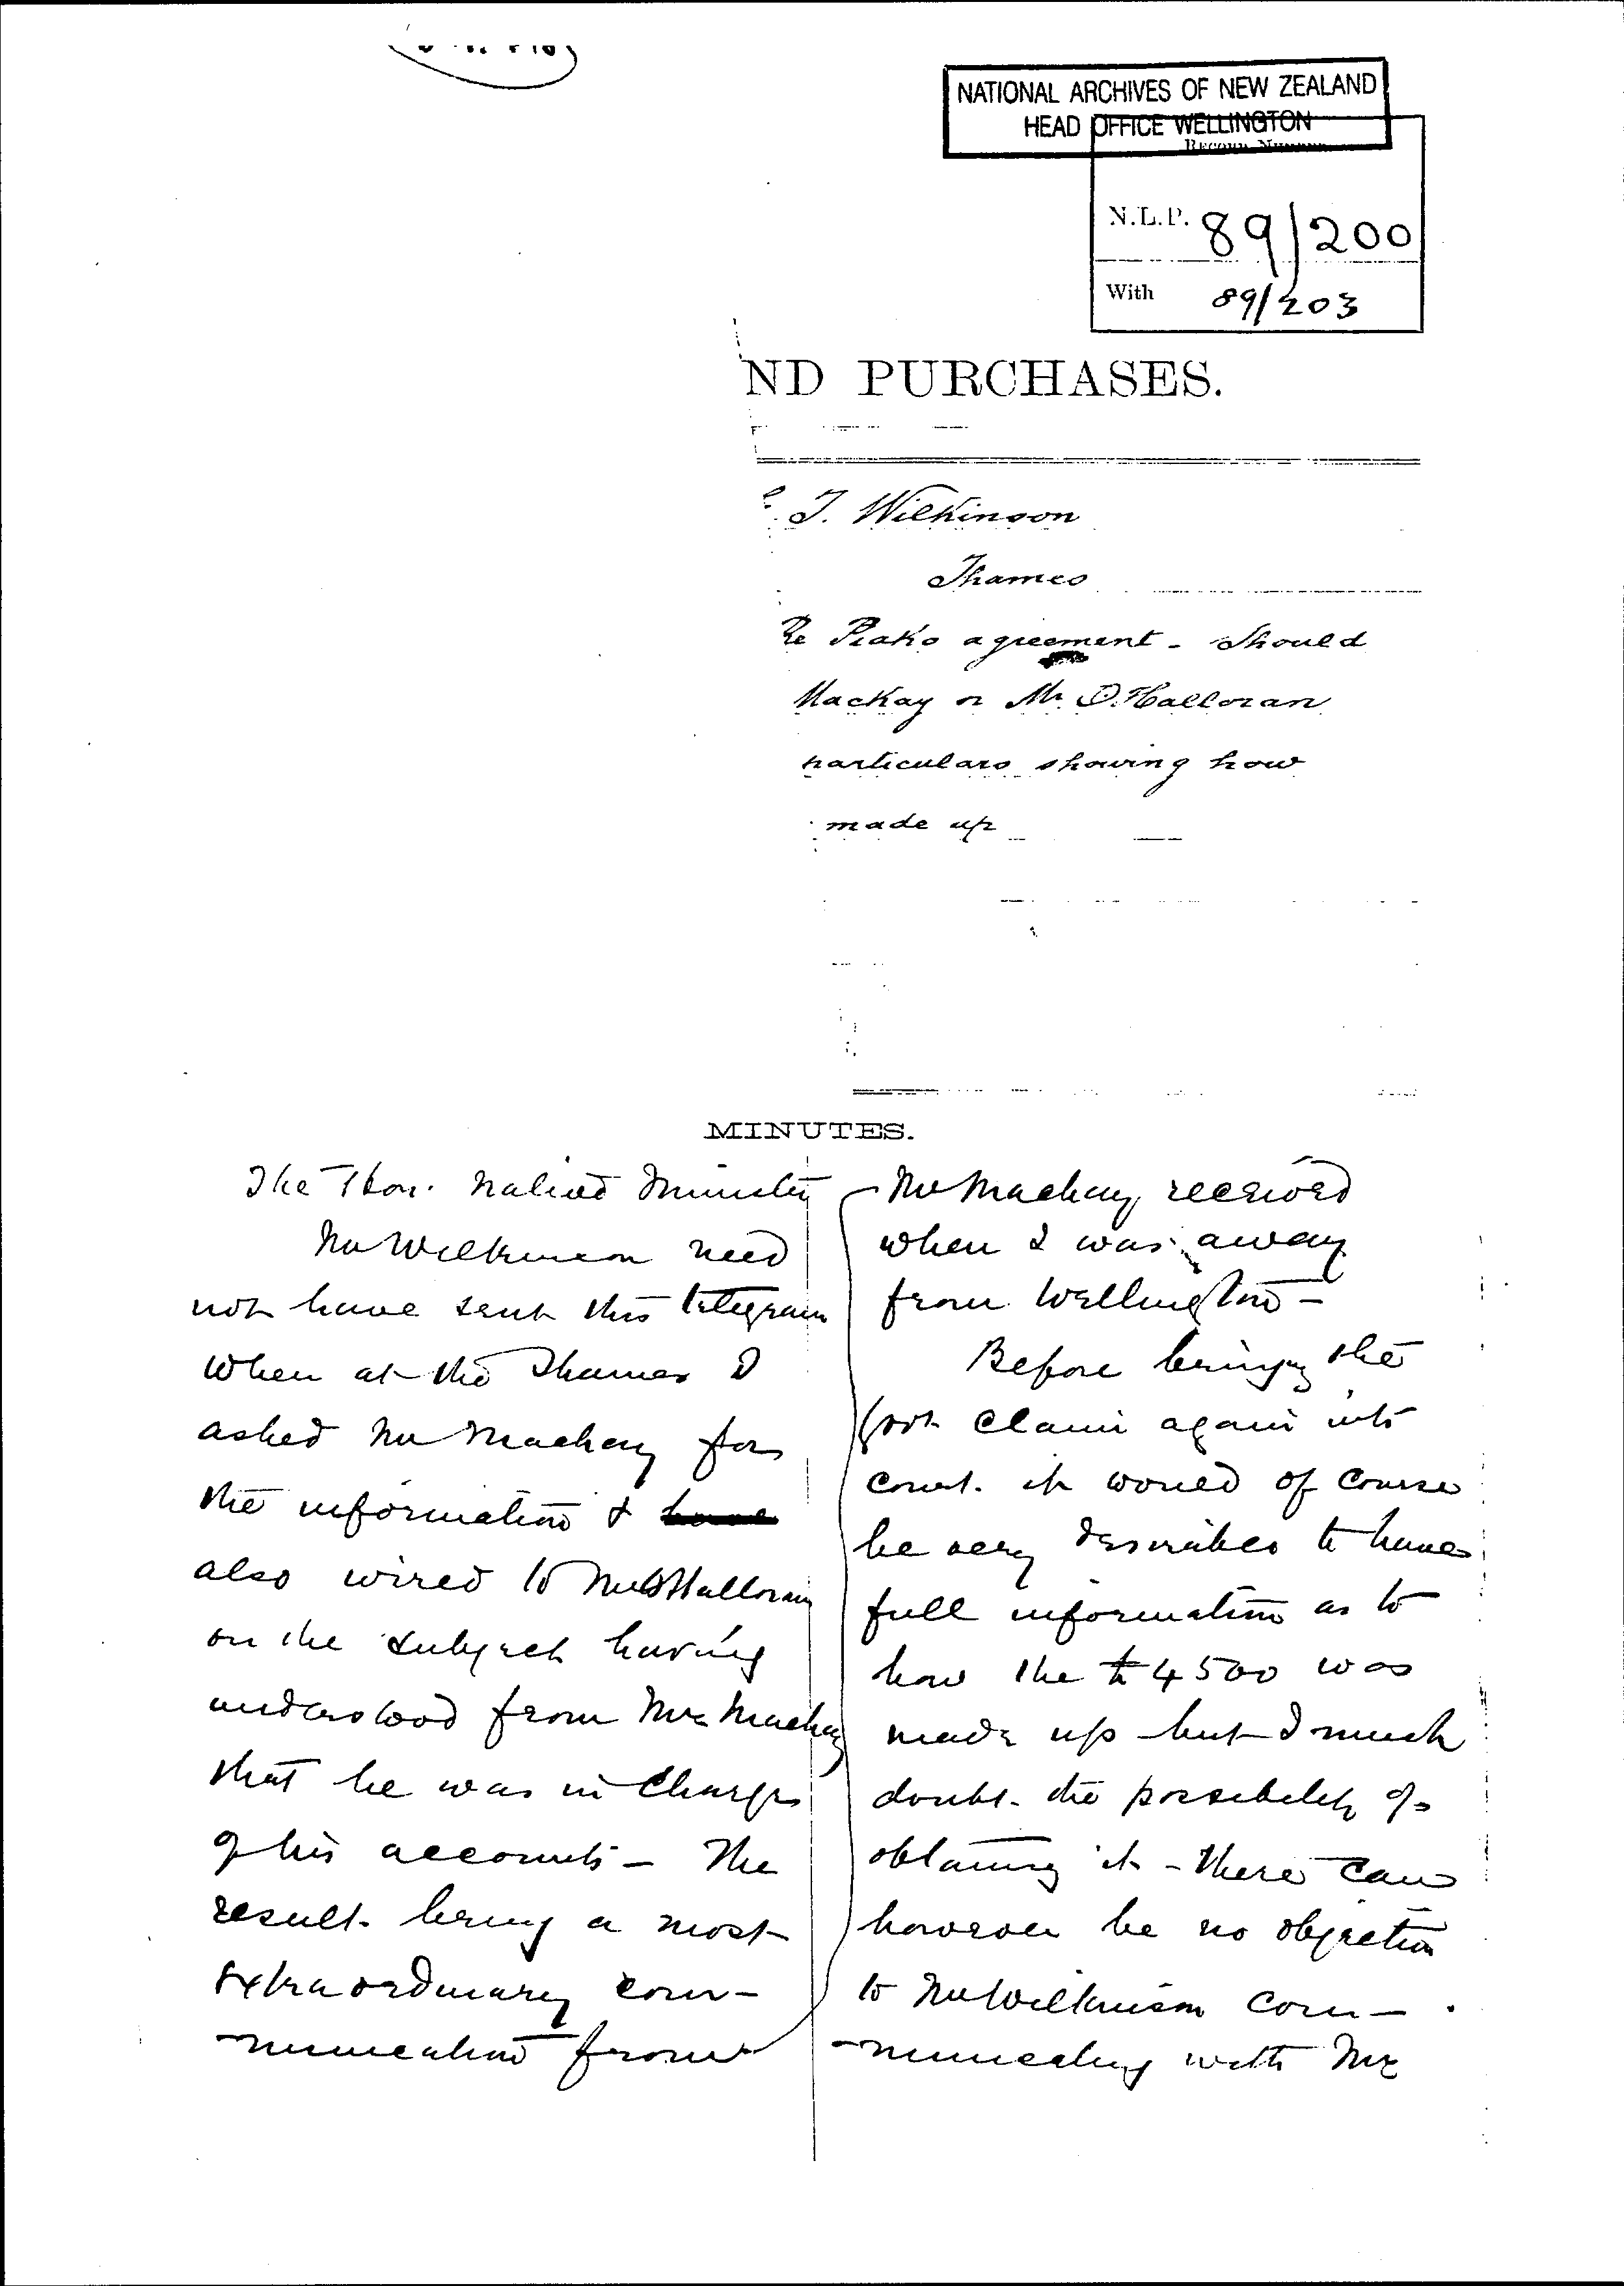 NATIONAL ARCHIVES OF NEW ZEALAND
HEAD OFFICE WELLINGTON
RECORD NUMBER
N.L.P. 89/200
With 89/203
ND PURCHASES.
T. Wilkinson
Thames
Re Piako agreement - Should
Mackay or Mr O'Halloran
particulars showing how
made up
MINUTES.
The Hon. Native Minister
Mr Wilkinson need
not have sent this telegram
When at the Thames I
asked Mr Mackay for
the information &
also wired to Mr O'Halloran
on the subject having
understood from Mr Mackay
that he was in charge
of his accounts - The
result being a most
extraordinary com-
-munication from
Mr Mackay received
when I was away
from Wellington -
Before bringing the
Govt claim again into
Court. it would of course
be very desirable to have
full information as to
how the £4500 was
made up but I much
doubt the possibility of
obtaining it - There can
however be no objection
to Mr Wilkinson com-
-municating with Mr